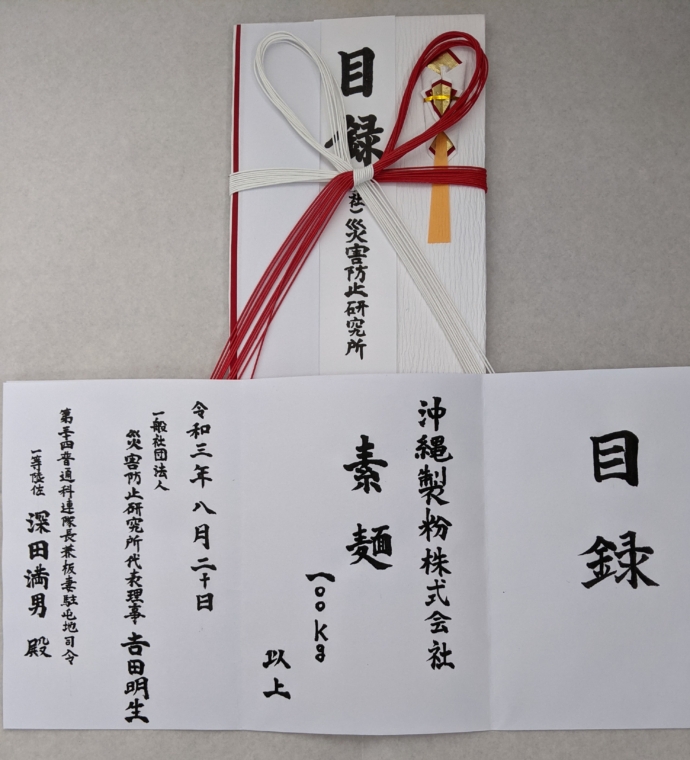 目録
社）災害防止研究所
目録
沖縄製粉株式会社
素麺
一〇〇kg
以上
令和三年八月二十日
一般社団法人
災害防止研究所代表理事 吉田明生
第三十四普通科連隊長兼板妻駐屯地司令
一等陸佐 深田満男 殿